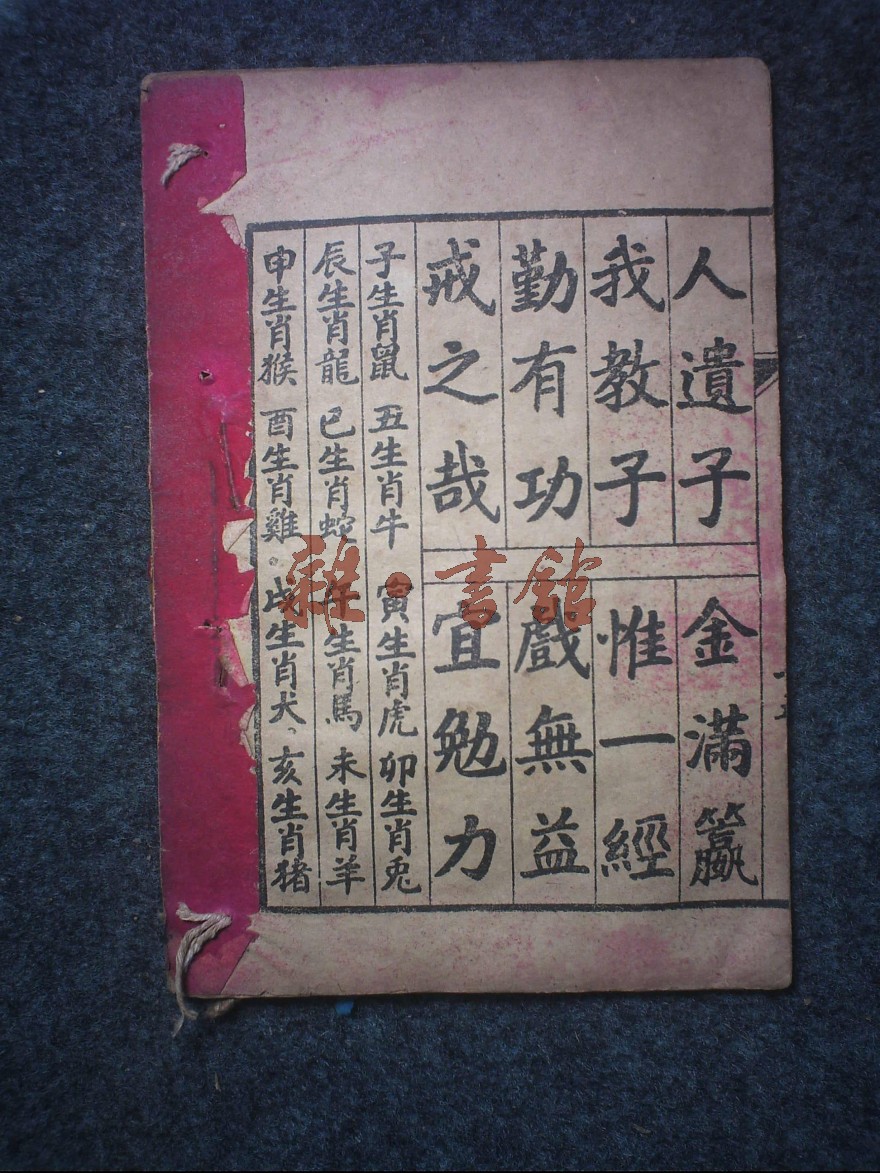 人遺子 金滿籯
我教子 惟一經
勤有功 戲無益
戒之哉 宜勉力
子生肖鼠 丑生肖牛 寅生肖虎 卯生肖兎
辰生肖龍 巳生肖蛇 午生肖馬 未生肖羊
申生肖猴 酉生肖雞。戌生肖犬。亥生肖猪
雜·書館